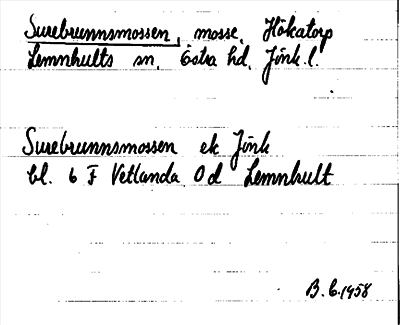 Surebrunnsmossen, mosse, Hökatorp
Lemnhults sn, Östra hd, Jönk.l.
Surebrunnsmossen ek Jönk
bl. 6 F Vetlanda 0 d Lemnhult
B.E.1958